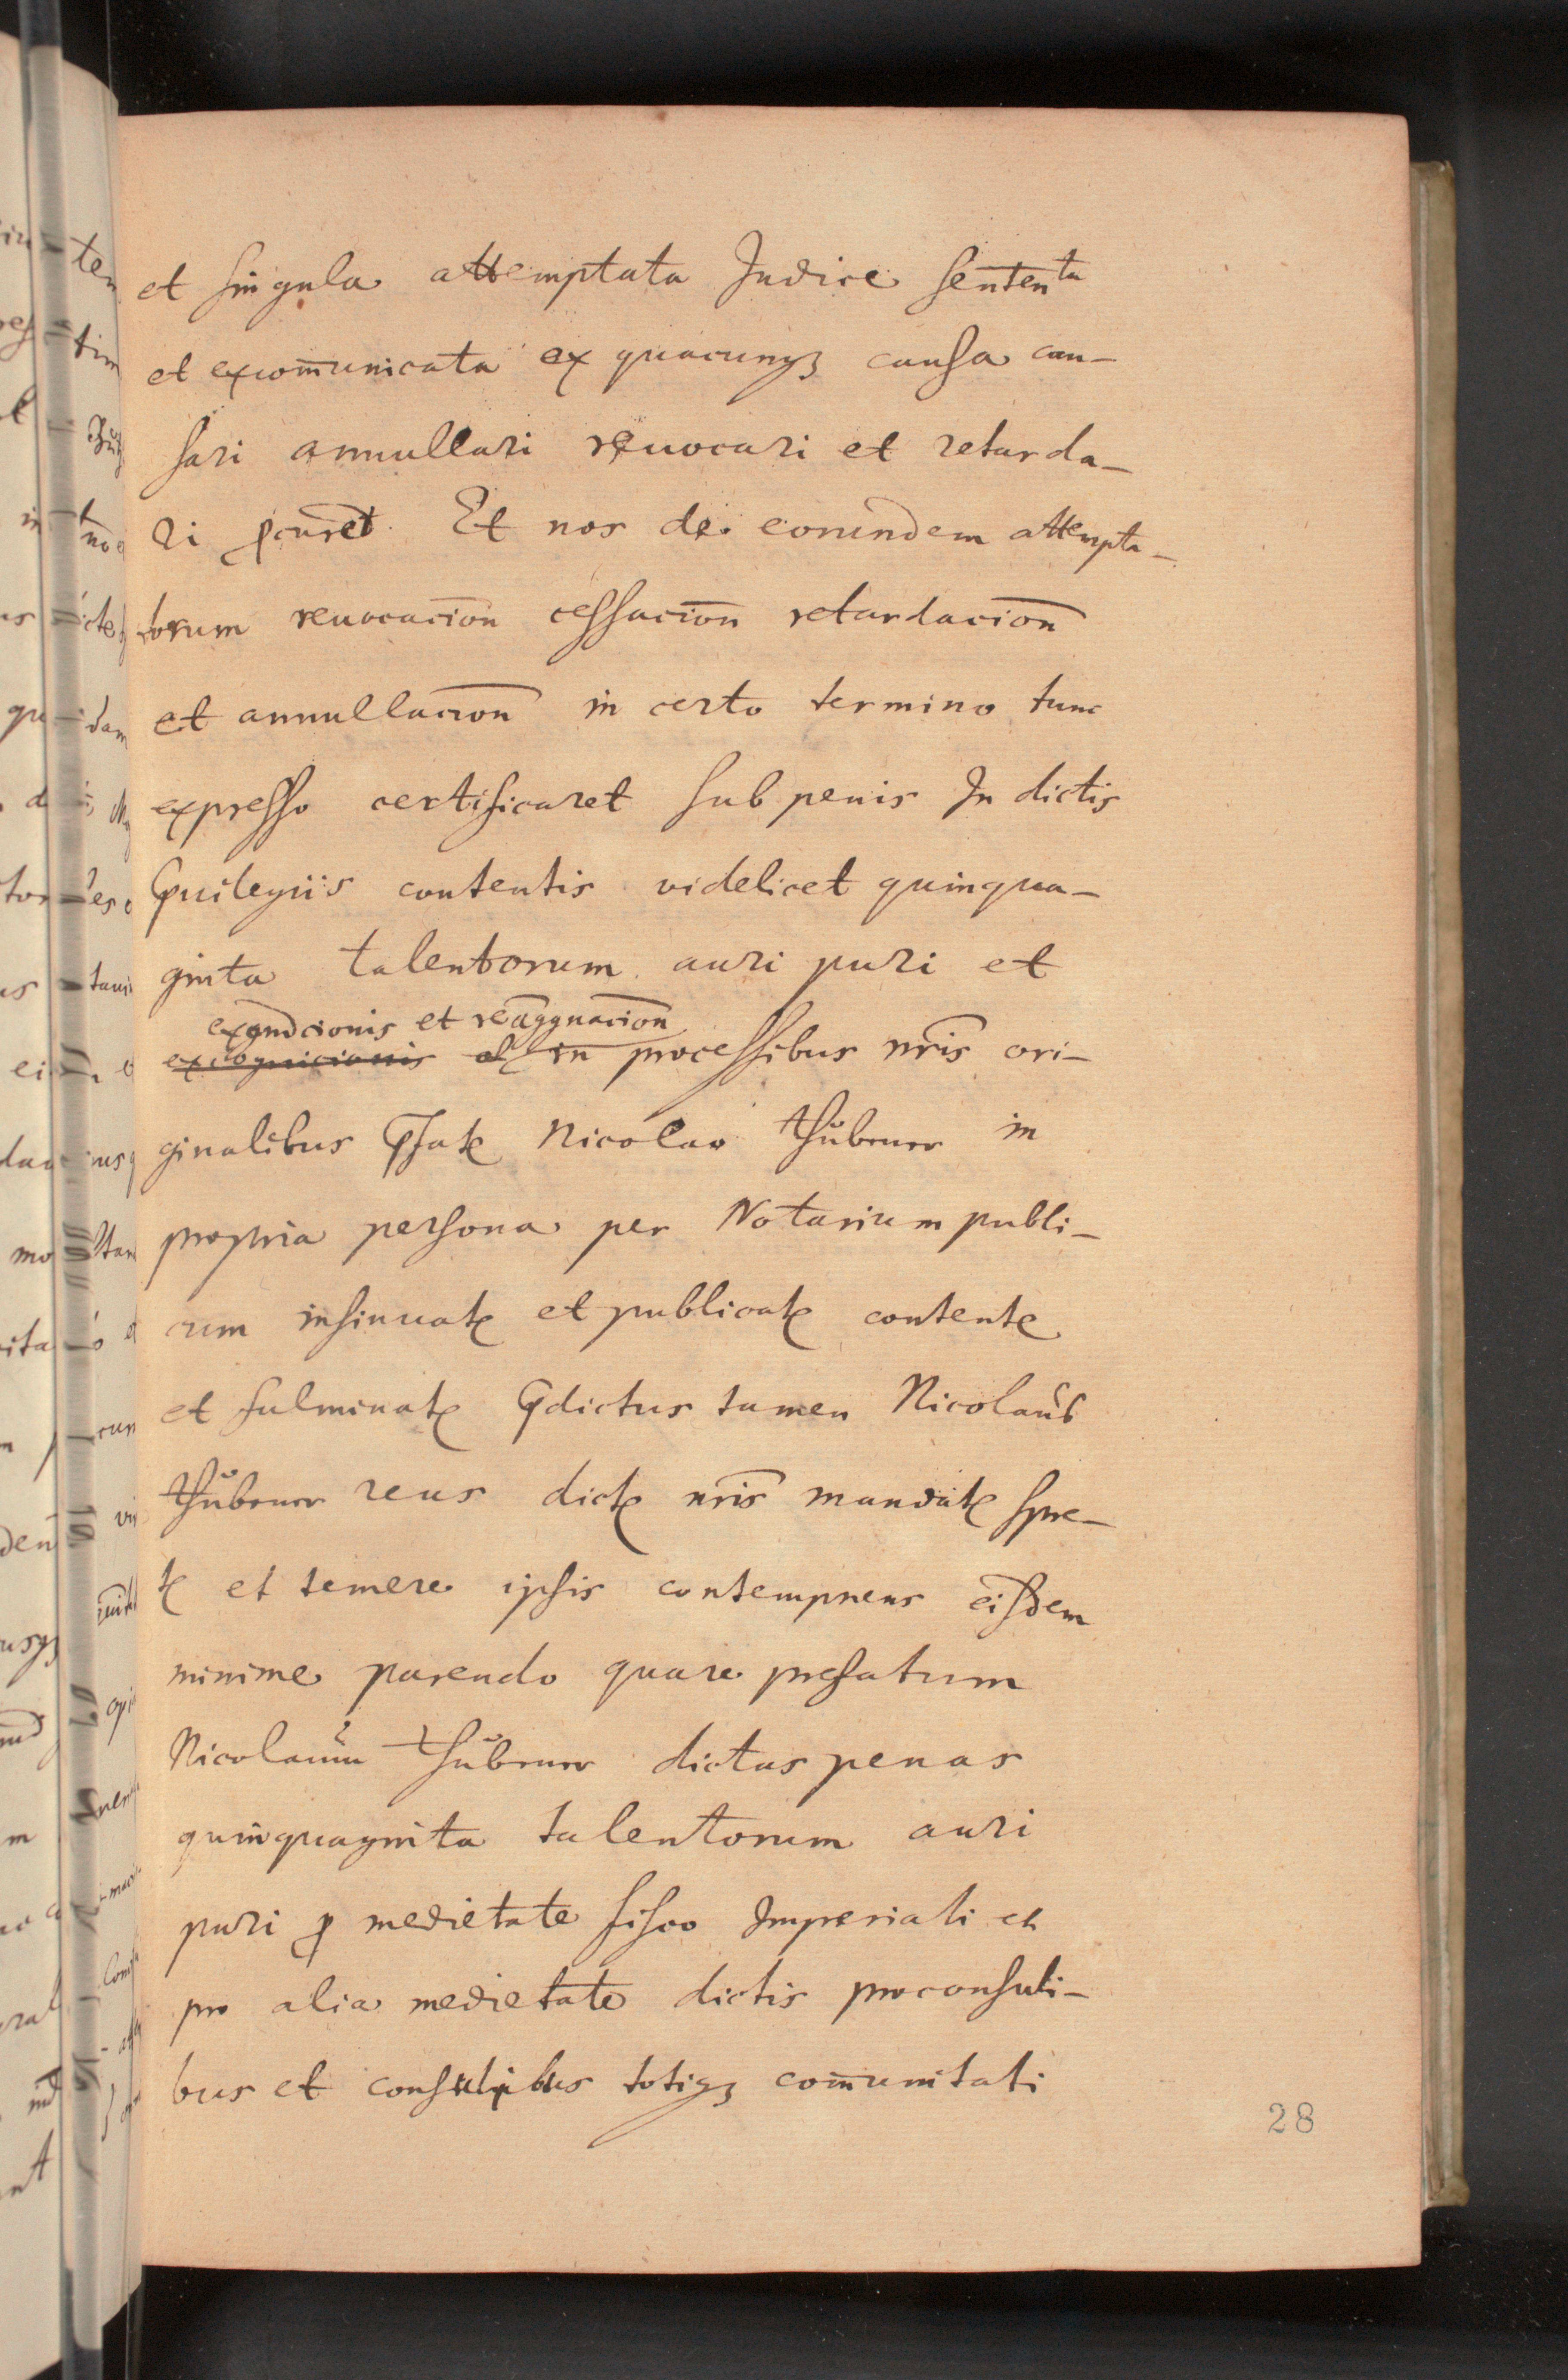 et singula attemptata Judice sententa
et excom̄unicata ex quacunqꝫ causa cau-
sari annullari reuocari et retarda-
ri ꝓcuret Et nos de eorundem attempta-
torum reuocacion̄ cessacion̄ retardacion̄
et annullacion̄ in certo termino tunc
expresso certificaret sub penis In dictis
p̄uilegiis contentis videlicet quinqua-
ginta talentorum auri puri et
in processibus nr̄is ori-
ginalibus Nicolao Hübner in
propria persona per Notarium publi-
cum insinuatꝭ et publicatꝭ contentꝭ
et fulminatꝭ p̄dictus tamen Nicolaus
Hübner reus dictꝭ nr̄is mandatꝭ spre-
tꝭ et temere ipsis contempnens eisdem
minime parendo quare prefatum
Nicolaum Hübner dictas penas
quinquaginta talentorum auri
puri ꝓ medietate fisco Imperiali et
pro alia medietate dictis proconsuli-
bus et consulibus totiqꝫ com̄unitati
28